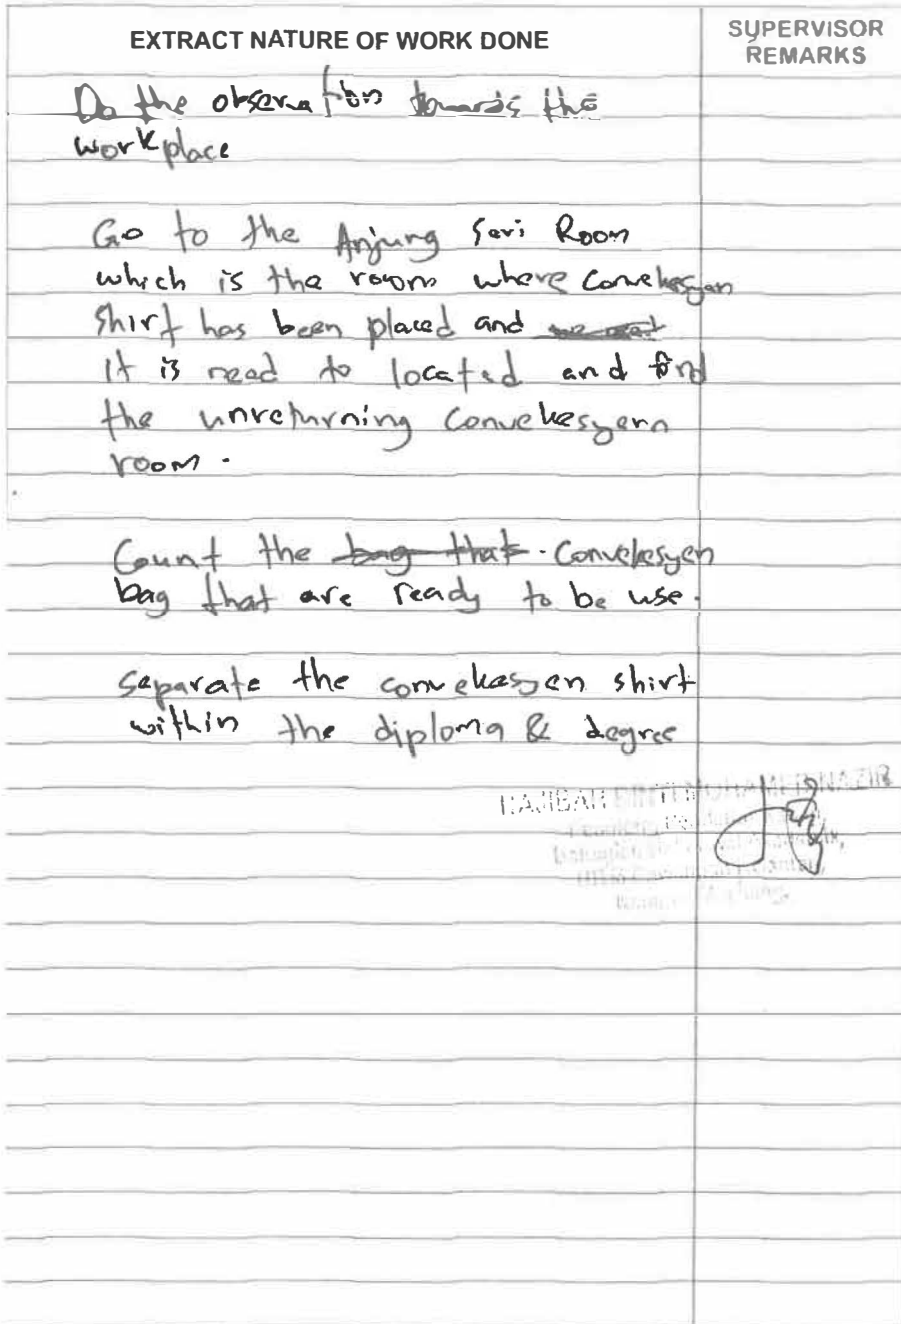 EXTRACT NATURE OF WORK DONE
SUPERVISOR
REMARKS
Do the observation towards the
workplace
Go to the Anjung Seri Room
which is the room where Convekesyen
shirt has been placed and
it is need to located and find
the unreturning Convekesyen
room.
Count the bag that. Convekesyen
bag that are ready to be use.
Separate the convekesyen shirt
within the diploma & degree
BINTI MOHAMED NAZIR